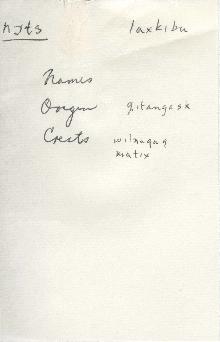 njts laxkibu
Names
Origin gitangasx
Crests wilnagag
matix